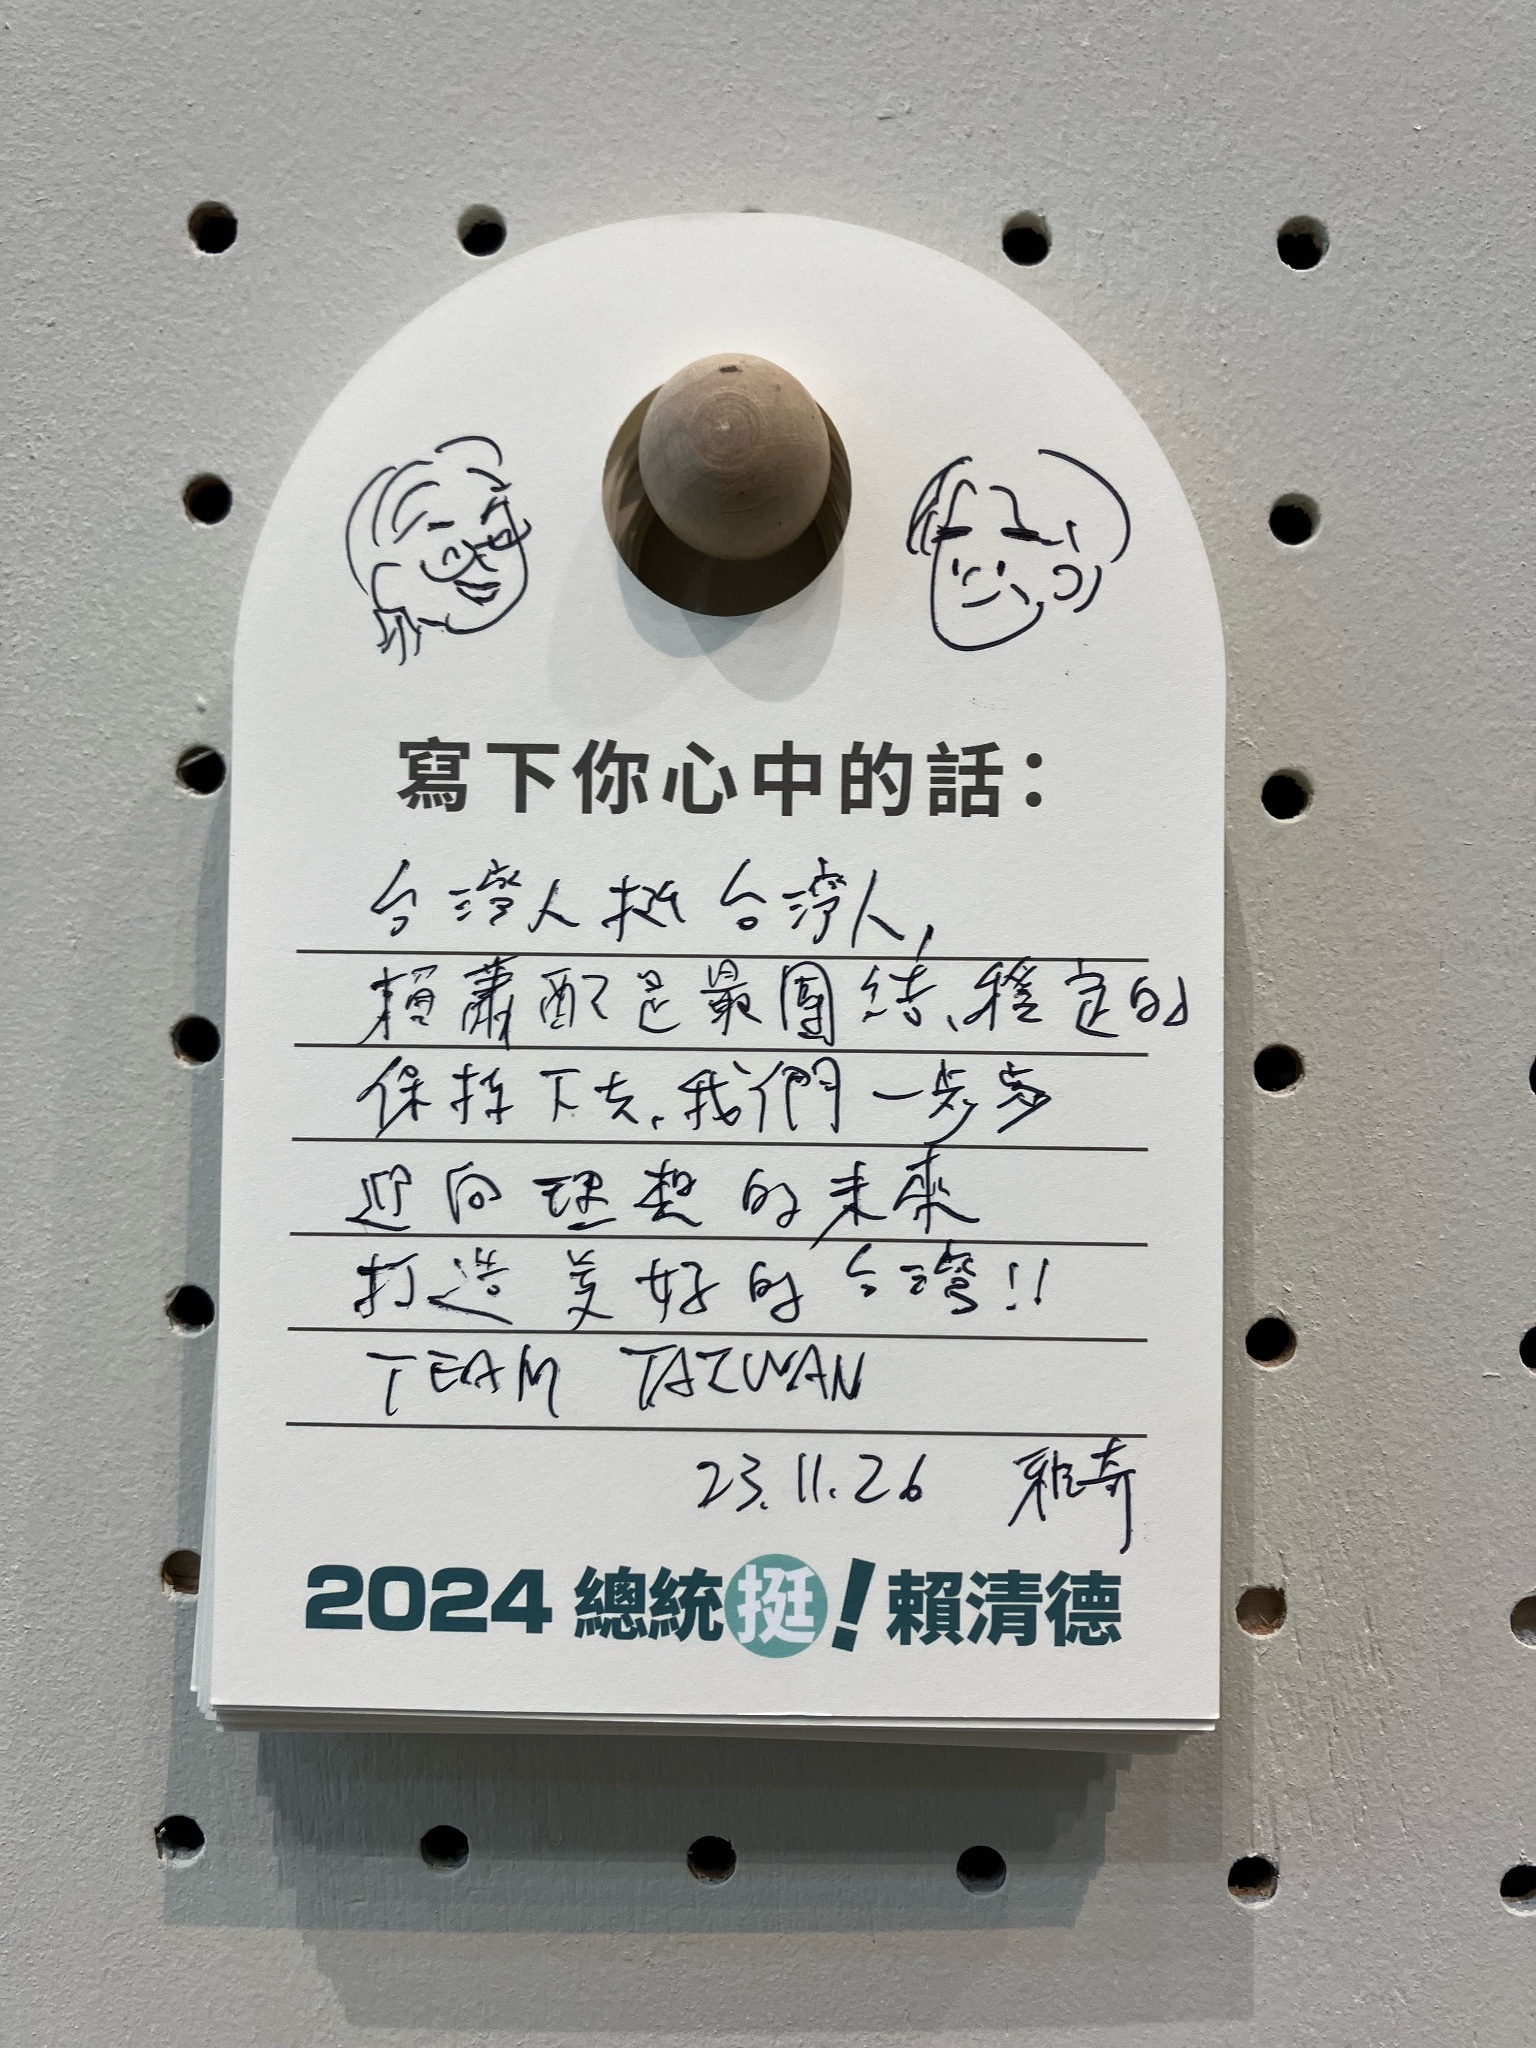 寫下你心中的話：
台灣人挺台灣人，
賴蕭配是最團結、穩定的
保持下去、我們一步步
迎向理想的未來
打造美好的台灣！！
TEAM TAIWAN
23.11.26 雅奇
2024 總統挺！賴清德